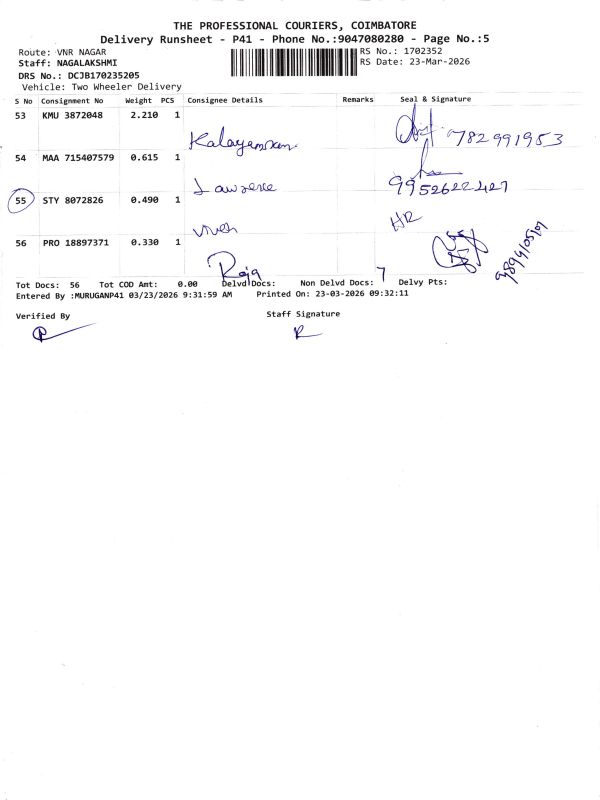 THE PROFESSIONAL COURIERS, COIMBATORE
Delivery Runsheet - P41 - Phone No.:9047080280 - Page No.:5
Route: VNR NAGAR RS No.: 1702352
Staff: NAGALAKSHMI RS Date: 23-Mar-2026
DRS No.: DCJB170235205
Vehicle: Two Wheeler Delivery
S No Consignment No Weight PCS Consignee Details Remarks Seal & Signature
53 KMU 3872048 2.210 1
782991953
54 MAA 715407579 0.615 1
Lawrence 9952622427
55 STY 8072826 0.490 1
HR
56 PRO 18897371 0.330 1
Raja
Tot Docs: 56 Tot COD Amt: 0.00 Delvd Docs: Non Delvd Docs: 7 Delvy Pts:
Entered By :MURUGANP41 03/23/2026 9:31:59 AM Printed On: 23-03-2026 09:32:11
Verified By Staff Signature